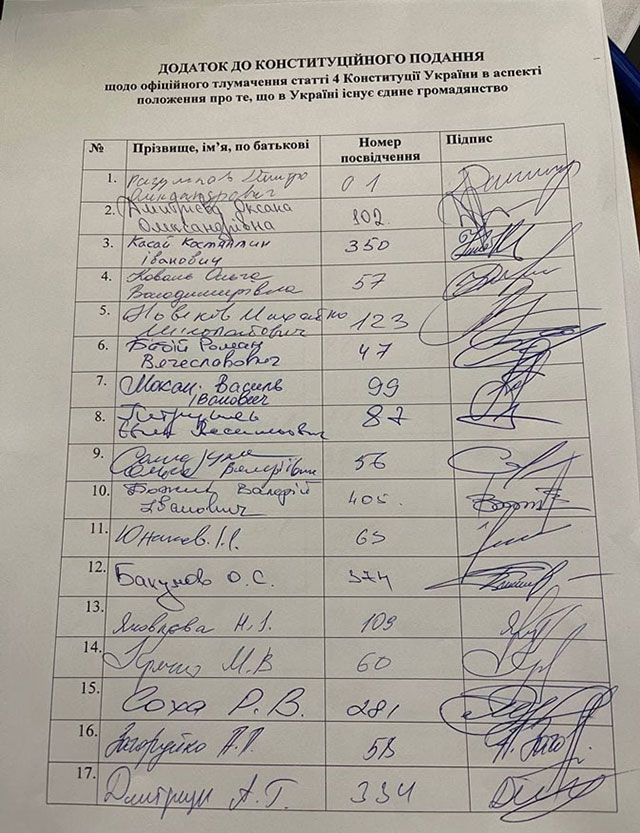 ДОДАТОК ДО КОНСТИТУЦІЙНОГО ПОДАННЯ
щодо офіційного тлумачення статті 4 Конституції України в аспекті
положення про те, що в Україні існує єдине громадянство
№ Прізвище, ім’я, по батькові Номер посвідчення Підпис
1. Разумков Дмитро
Олександрович 01
2. Дмитрієва Оксана
Олександрівна 102
3. Касай Костянтин
Іванович 350
4. Коваль Ольга
Володимирівна 57
5. Новіков Михайло
Миколайович 123
6. Бабій Роман
Вячеславович 47
7. Мокан Василь
Іванович 99
8. 87
9. Ольга Валеріївна 56
10. Божик Валерій
Іванович 405.
11. Юнаков І.С. 65
12. Бакумов О.С. 374
13. Яковлєва Н.І. 109
14. М.В 60
15. Соха Р.В. 281
16. Загоруйко А.Л. 58
17. Дмитрук А.Г. 334